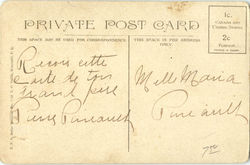 PRIVATE POST CARD
THIS SPACE MAY BE USED FOR CORRESPONDENCE
THIS SPACE IS FOR ADDRESS ONLY
1c.
CANADA AND
UNITED STATES
2c
FOREIGN
Recois cette
carte de ton
Grand père
Pierre Pineault
Melle Maria
Pineault